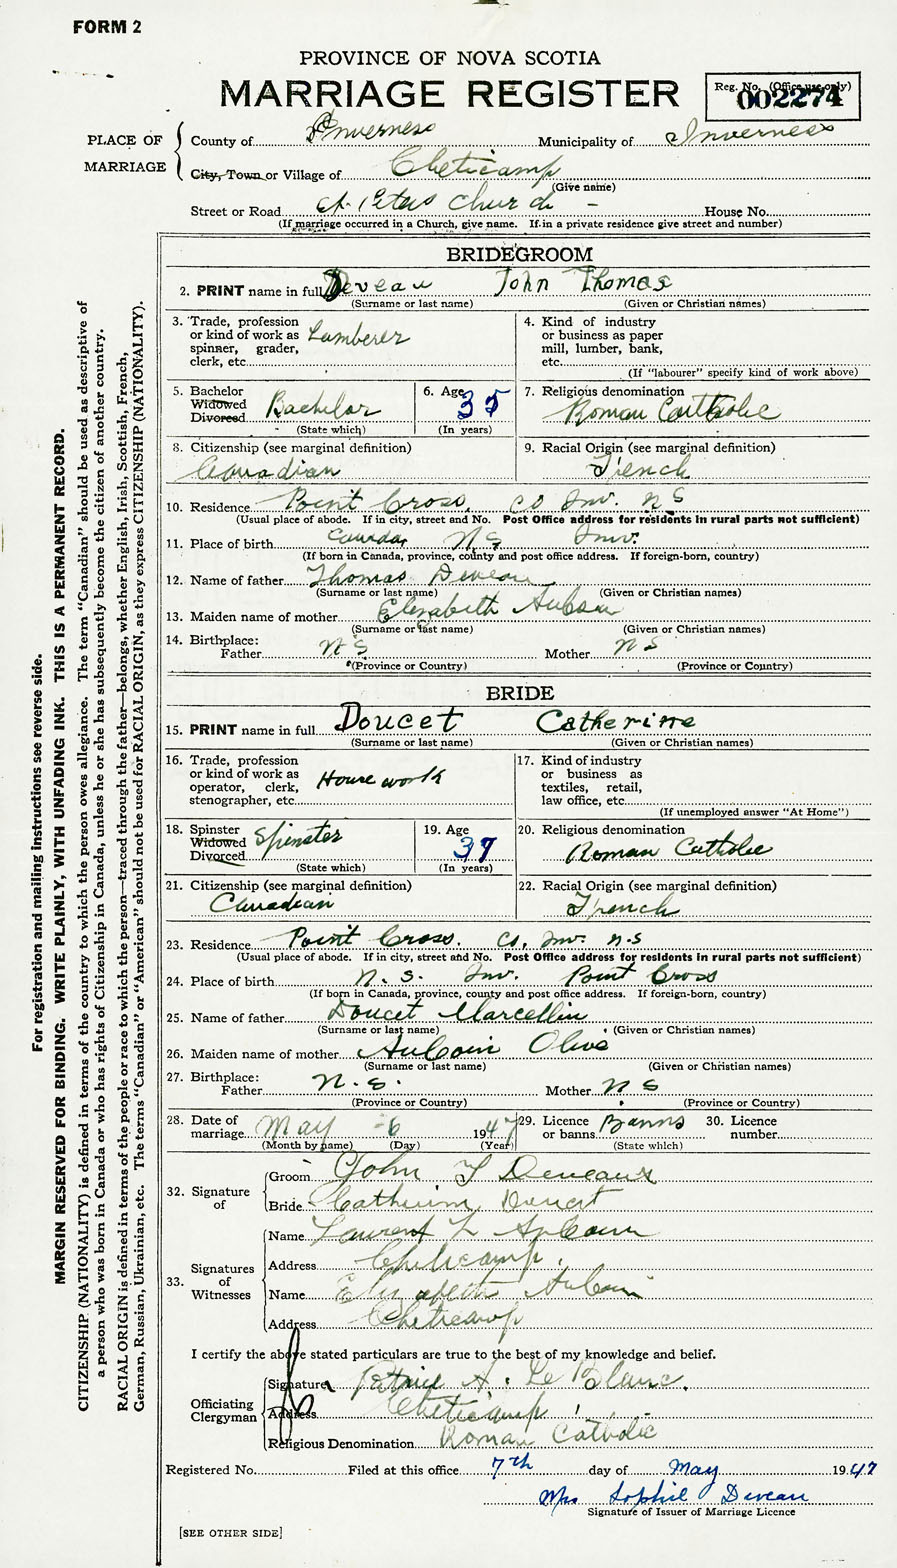 FORM 2
PROVINCE OF NOVA SCOTIA
MARRIAGE REGISTER
Reg. No. (Office use only)
002274
PLACE OF MARRIAGE
County of Inverness Municipality of Inverness
City, Town or Village of Cheticamp
(Give name)
Street or Road St. Peters Church - House No.
(If marriage occurred in a Church, give name. If in a private residence give street and number)
BRIDEGROOM
2. PRINT name in full Deveau John Thomas
(Surname or last name) (Given or Christian names)
3. Trade, profession or kind of work as spinner, grader, clerk, etc. Lumberer
4. Kind of industry or business as paper mill, lumber, bank, etc.
(If "labourer" specify kind of work above)
5. Bachelor Widowed Divorced Bachelor
(State which)
6. Age 35
(In years)
7. Religious denomination
Roman Catholic
8. Citizenship (see marginal definition)
Canadian
9. Racial Origin (see marginal definition)
French
10. Residence Point Cross, Co Inv. NS
(Usual place of abode. If in city, street and No. Post Office address for residents in rural parts not sufficient)
11. Place of birth Canada NS Inv.
(If born in Canada, province, county and post office address. If foreign-born, country)
12. Name of father Thomas Deveau
(Surname or last name) (Given or Christian names)
13. Maiden name of mother Elizabeth
(Surname or last name) (Given or Christian names)
14. Birthplace:
Father NS Mother NS
(Province or Country) (Province or Country)
BRIDE
15. PRINT name in full Doucet Catherine
(Surname or last name) (Given or Christian names)
16. Trade, profession or kind of work as operator, clerk, stenographer, etc. House work
17. Kind of industry or business as textiles, retail, law office, etc.
(If unemployed answer "At Home")
18. Spinster Widowed Divorced Spinster
(State which)
19. Age 37
(In years)
20. Religious denomination
Roman Catholic
21. Citizenship (see marginal definition)
Canadian
22. Racial Origin (see marginal definition)
French
23. Residence Point Cross. Co, Inv. N.S
(Usual place of abode. If in city, street and No. Post Office address for residents in rural parts not sufficient)
24. Place of birth N. S. Inv. Point Cross
(If born in Canada, province, county and post office address. If foreign-born, country)
25. Name of father Doucet Marcellin
(Surname or last name) (Given or Christian names)
26. Maiden name of mother AuCoin Olive
(Surname or last name) (Given or Christian names)
27. Birthplace:
Father N.S. Mother NS
(Province or Country) (Province or Country)
28. Date of marriage May 6 1947
(Month by name) (Day) (Year)
29. Licence or banns Banns
(State which)
30. Licence number
32. Signature of
Groom John T Deveaux
Bride Catherine Doucet
33. Signatures of Witnesses
Name Laurent L AuCoin
Address Cheticamp.
Name Elizabeth AuCoin
Address Cheticamp
I certify the above stated particulars are true to the best of my knowledge and belief.
Officiating Clergyman
Signature Patrice A. LeBlanc.
Address Cheticamp
Religious Denomination Roman Catholic
Registered No. Filed at this office 7th day of May 1947
Mrs Sophie Deveau
Signature of Issuer of Marriage Licence
[SEE OTHER SIDE]
For registration and mailing instructions see reverse side.
MARGIN RESERVED FOR BINDING. WRITE PLAINLY, WITH UNFADING INK. THIS IS A PERMANENT RECORD.
CITIZENSHIP (NATIONALITY) is defined in terms of the country to which the person owes allegiance. The term "Canadian" should be used as descriptive of
a person who was born in Canada or who has rights of Citizenship in Canada, unless he or she has subsequently become the citizen of another country.
RACIAL ORIGIN is defined in terms of the people or race to which the person—traced through the father—belongs, whether English, Irish, Scottish, French,
German, Russian, Ukrainian, etc. The terms "Canadian" or "American" should not be used for RACIAL ORIGIN, as they express CITIZENSHIP (NATIONALITY).